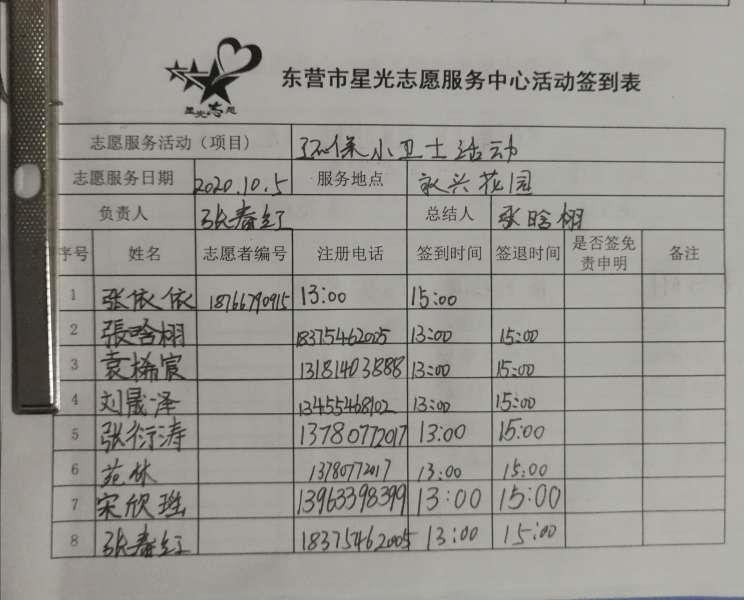 星光志愿
东营市星光志愿服务中心活动签到表
志愿服务活动（项目） 环保小卫士活动
志愿服务日期 2020.10.5 服务地点 永兴花园
负责人 张春红 总结人 张晗栩
序号 姓名 志愿者编号 注册电话 签到时间 签退时间 是否签免责申明 备注
1 张依依 18766790915 13:00 15:00
2 張晗栩 18375462005 13:00 15:00
3 袁梓宸 13181403888 13:00 15:00
4 刘晟泽 13455468102 13:00 15:00
5 张衍涛 13780772017 13:00 15:00
6 苑林 13780772017 13:00 15:00
7 宋欣 13963398399 13:00 15:00
8 张春红 18375462005 13:00 15:00